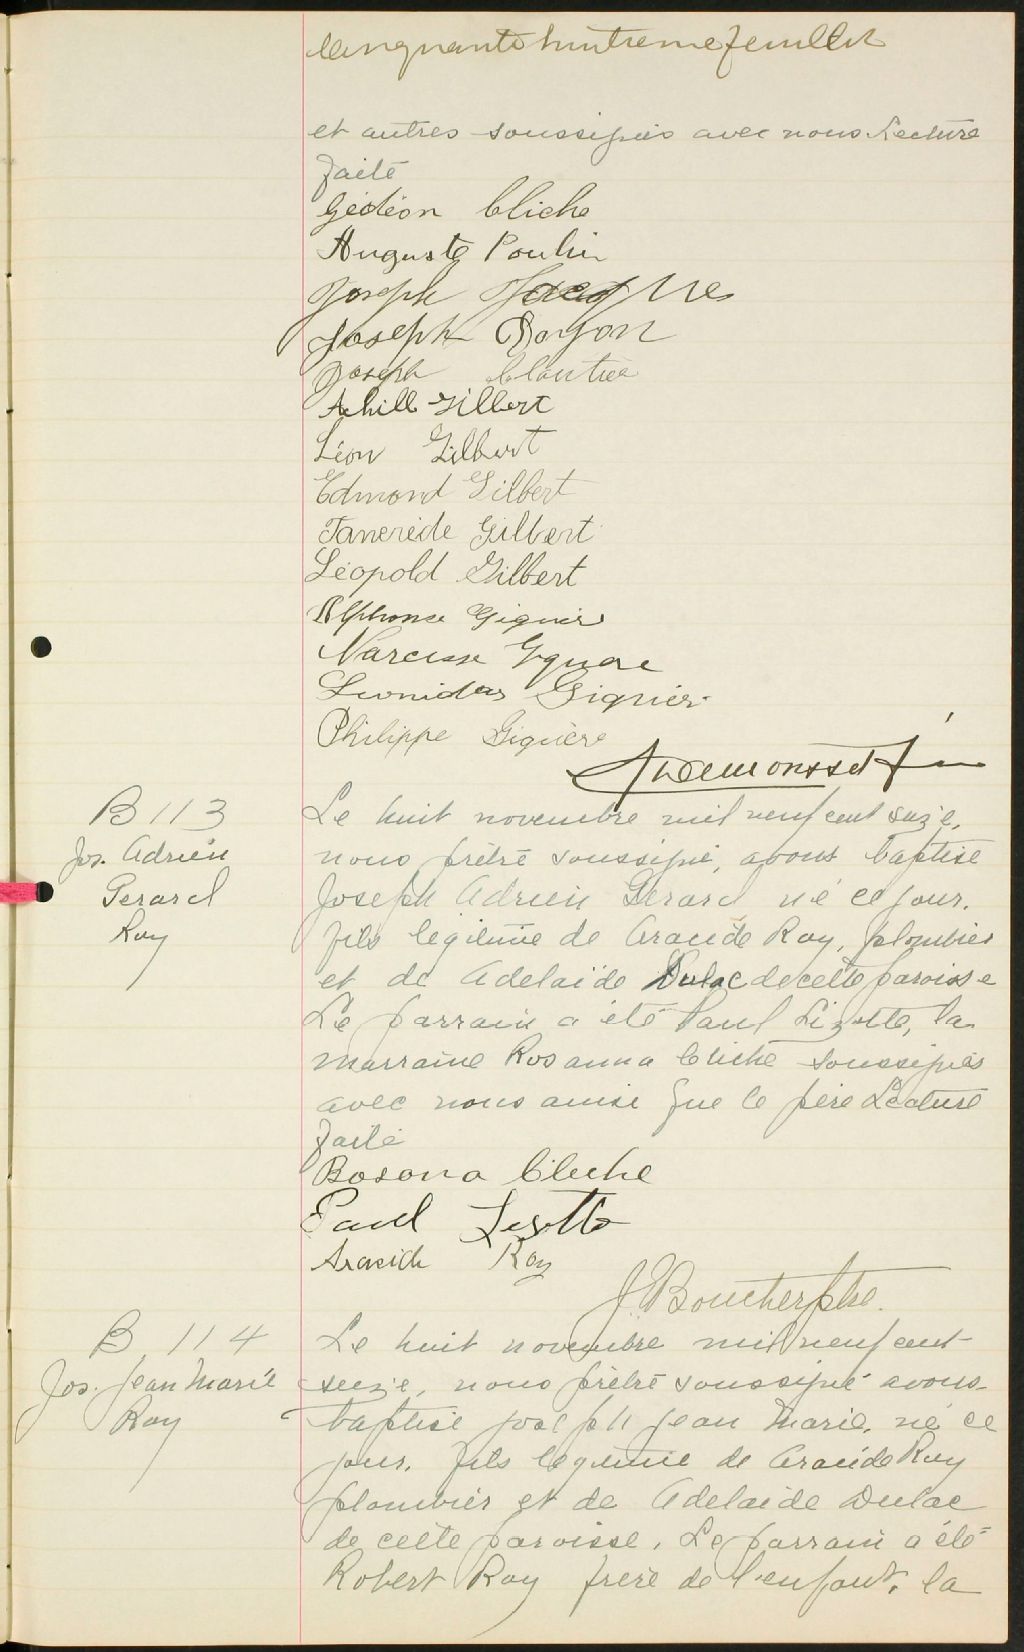 Cinquante huitieme feuillet
et autres soussignés avec nous Lecture
faite
Gédéon Cliche
Auguste Poulin
Joseph Jacques
Joseph Doyon
Joseph Cloutier
Achill Gilbert
Léon Gilbert
Edmond Gilbert
Tancrède Gilbert
Léopold Gilbert
Alphonse Giguère
Narcisse Giguere
Leonidas Giguèr
Philippe Giguère
B 113
Jos. Adrien
Gerard
Roy
Le huit novembre mil neuf cent seize,
nous prêtre soussigné, avons baptisé
Joseph Adrien Gerard né ce jour.
fils légitime de Aracide Roy, plombier
et de Adelaïde Dulac de cette paroisse
Le parrain a été Paul Lizotte, la
marraine Rosanna Cliche soussignés
avec nous ainsi que le père Lecture
faite
Rosana Cliche
Paul Lizotte
Aracide Roy
J. Boucher ptre.
B 114
Jos. Jean Marie
Roy
Le huit novembre mil neuf cent
seize, nous prêtre soussigné avons
baptisé Joseph Jean Marie, né ce
jour, fils légitime de Aracide Roy
plombier et de Adelaïde Dulac
de cette paroisse. Le parrain a été
Robert Roy frère de l'enfant, la